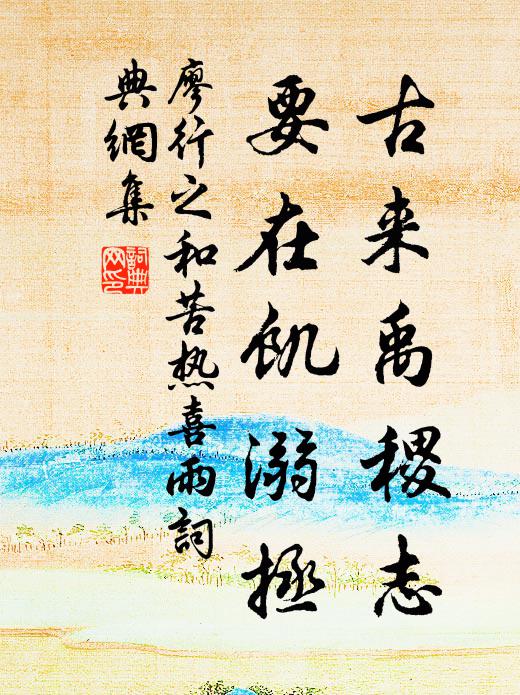 古来禹稷志
要在饥溺拯
廖行之和苦热喜雨词
典網集
詞典網印